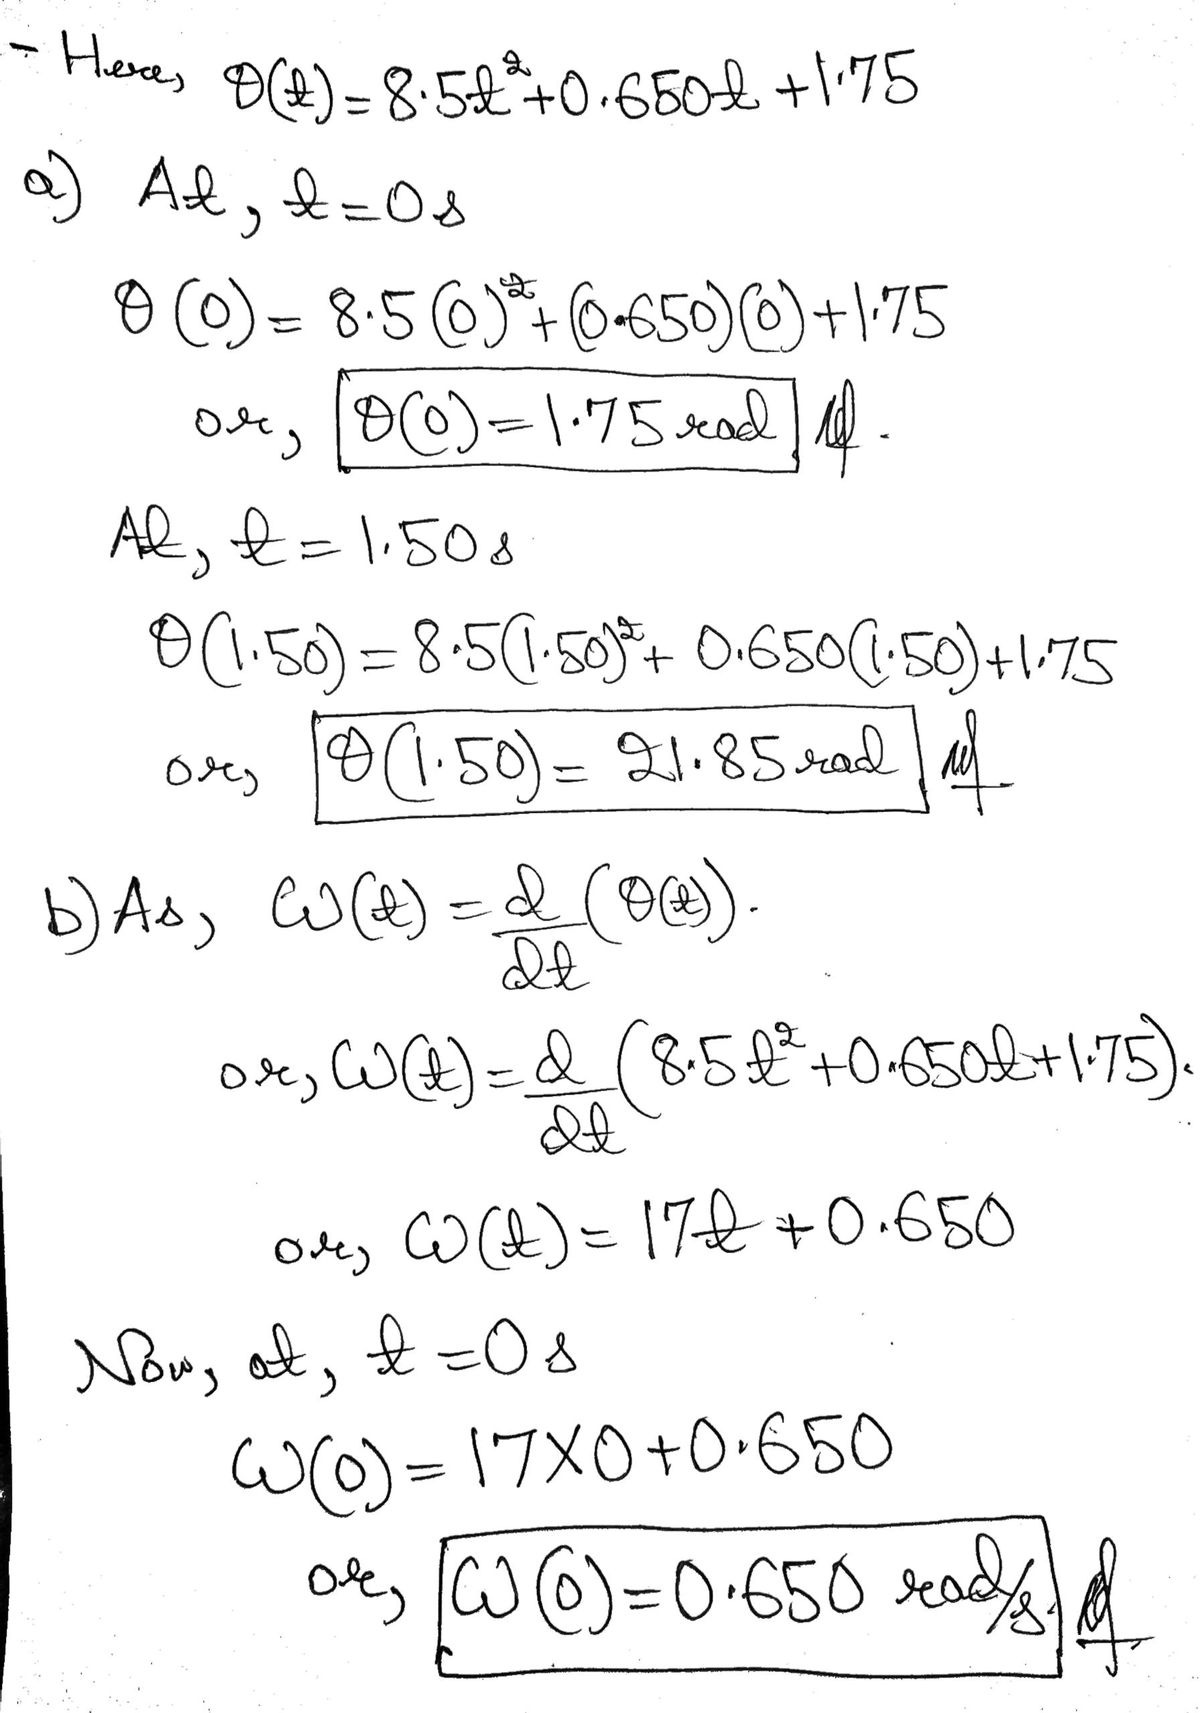 - Here, θ(t) = 8.5t² + 0.650t + 1.75
a) At, t = 0 s
θ(0) = 8.5(0)² + (0.650)(0) + 1.75
or, θ(0) = 1.75 rad
At, t = 1.50 s
θ(1.50) = 8.5(1.50)² + 0.650(1.50) + 1.75
or, θ(1.50) = 21.85 rad
b) As, ω(t) = d/dt (θ(t)).
or, ω(t) = d/dt (8.5t² + 0.650t + 1.75).
or, ω(t) = 17t + 0.650
Now, at, t = 0 s
ω(0) = 17 × 0 + 0.650
or, ω(0) = 0.650 rad/s.